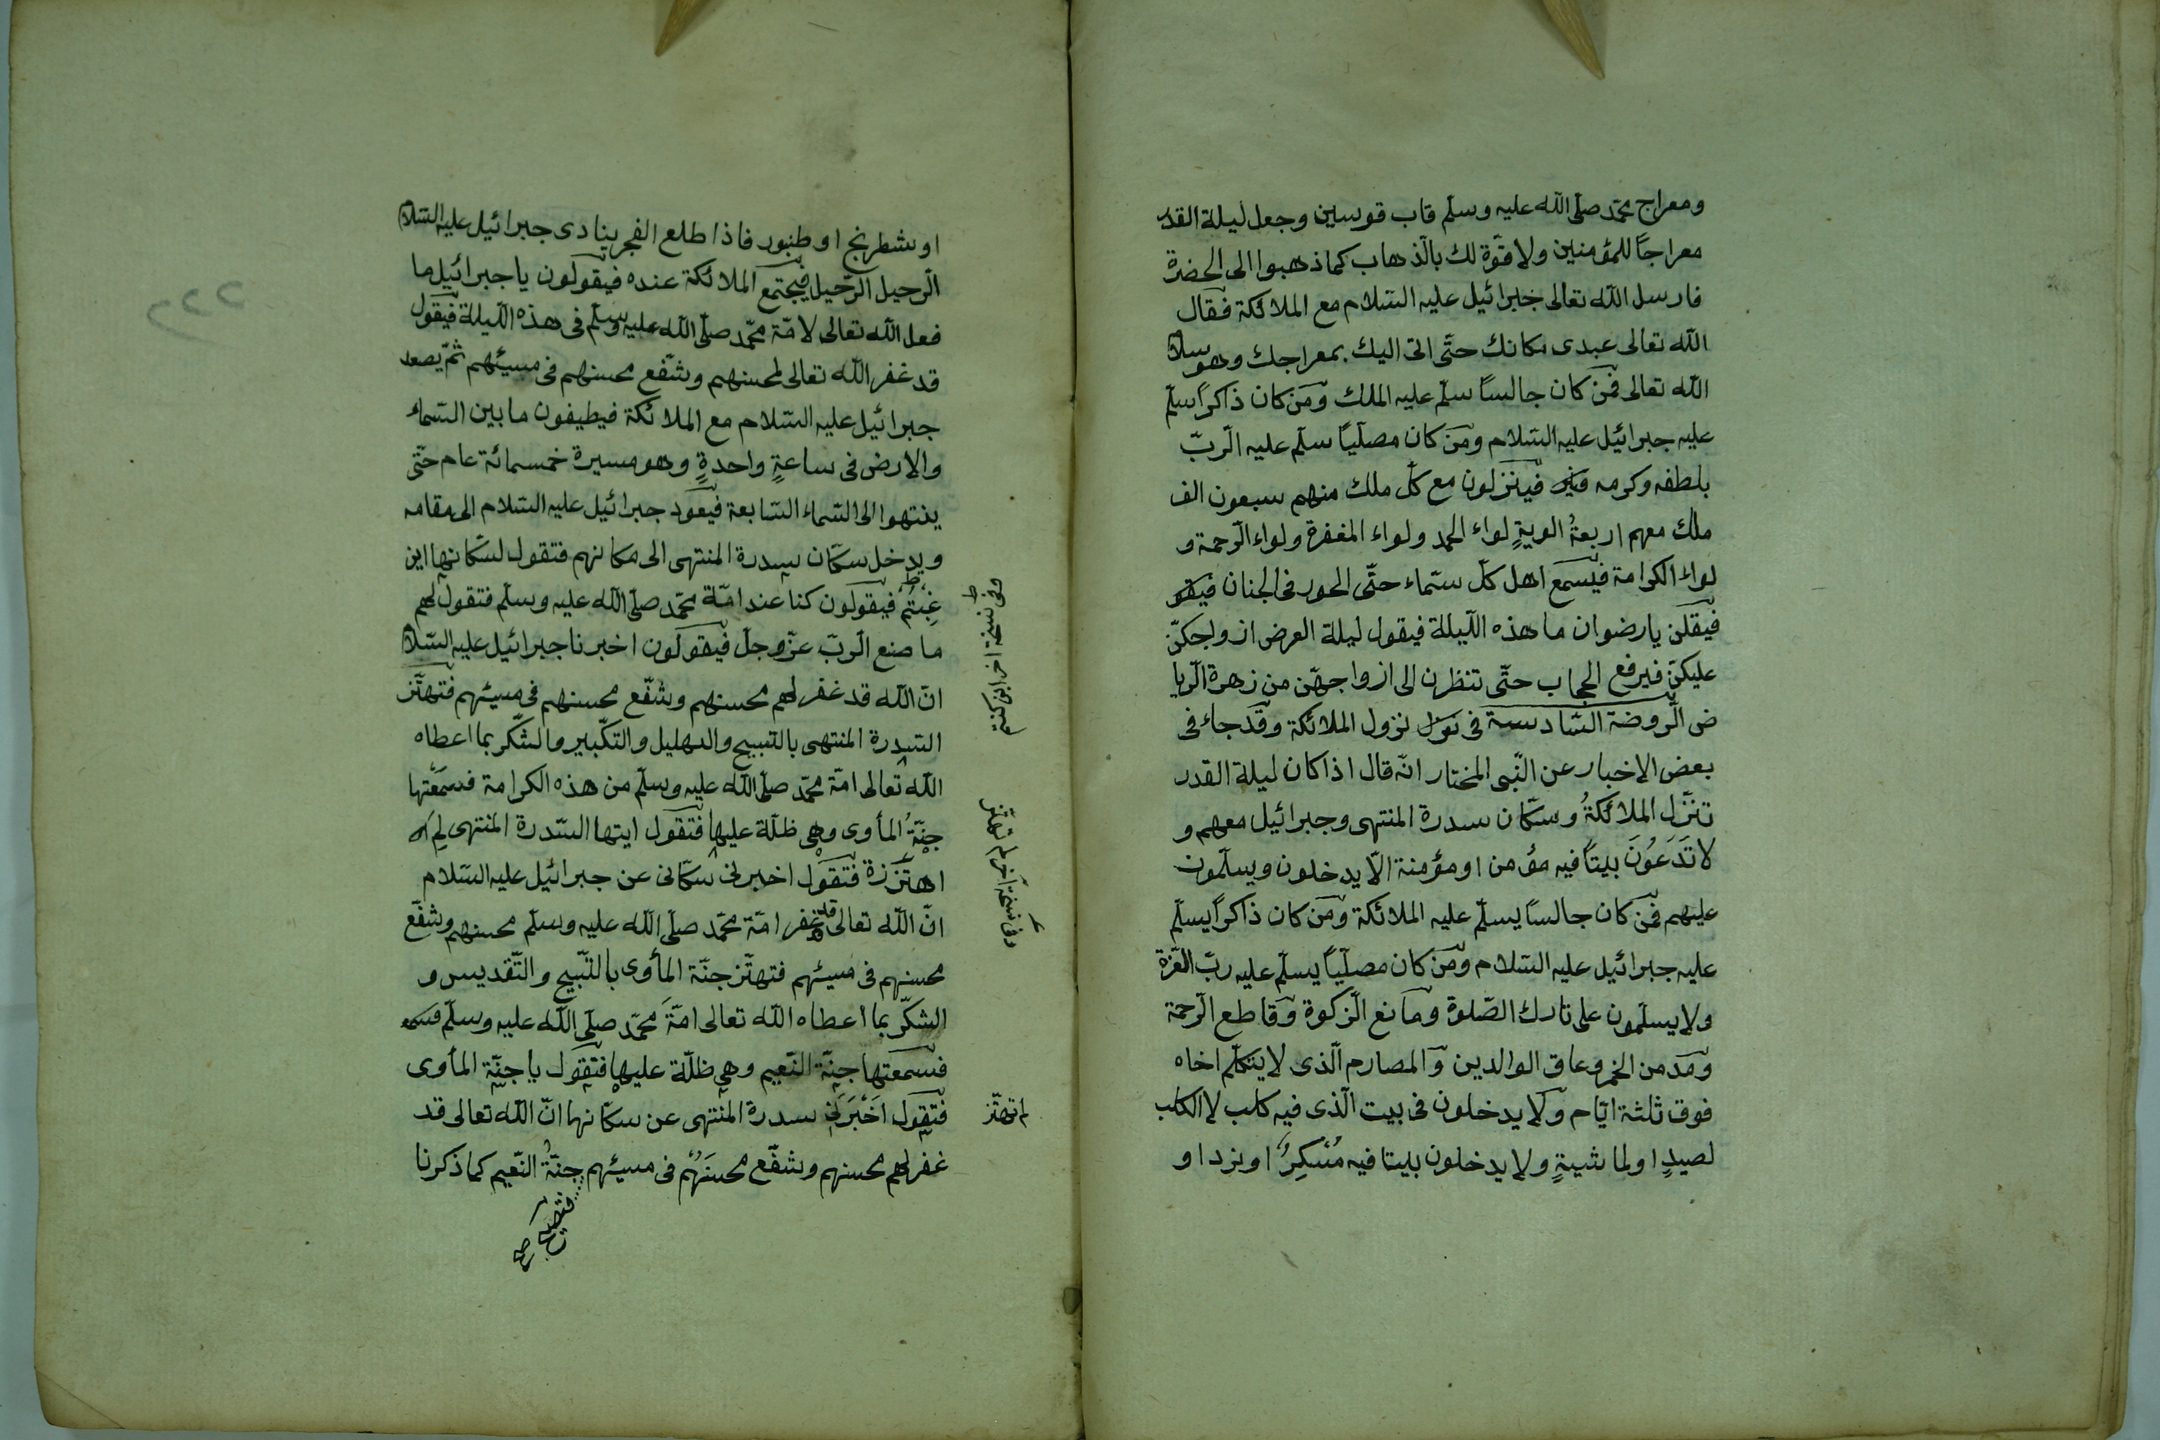 ومعراج محمّد صلّى الله عليه وسلّم قاب قوسين وجعل ليلة القدر
معراجاً للمؤمنين ولا قوّة لك بالذهاب كما ذهبوا الى الحضرة
فارسل الله تعالى جبرائيل عليه السّلام مع الملائكة فقال
الله تعالى عبدى مكانك حتّى اتى اليك بمعراجك وهو سلام
الله تعالى فمن كان جالساً سلّم عليه الملك ومن كان ذاكراً سلّم
عليه جبرائيل عليه السّلام ومن كان مصلّياً سلّم عليه الرّبّ
بلطفه وكرمه فينزلون مع كلّ ملك منهم سبعون الف
ملك معهم اربعةُ الويةٍ لواء الحمد ولواء المغفرة ولواء الرّحمة و
لواء الكرامة فيسمع اهل كلّ سمّاء حتّى الحور فى الجنان فيقو
فيقلن يا رضوان ما هذه اللّيلة فيقول ليلة العرض ازواجكنّ
عليكنّ فيرفع الحجاب حتّى تنظرن الى ازواجهّن من زهرة الرّيا
ض الرّوضة السّادسة فى نزول الملائكة وقد جاء فى
بعض الاخبار عن النّبى المختار انّه قال اذا كان ليلة القدر
تنزّل الملائكةُ وسكّان سدرة المنتهى وجبرائيل معهم و
لا تَدَعُونَ بيتاً فيه مؤمن او مؤمنة الّا يدخلون ويسلّمون
عليهم فمن كان جالساً يسلّم عليه الملائكة ومن كان ذاكراً يسلّم
عليه جبرائيل عليه السّلام ومن كان مصلّياً يسلّم عليه ربّ العزّة
ولا يسلّمون على تارك الصّلوة ومانع الزّكوة وقاطع الرّحمة
ومدمن الخمر وعاق الوالدين والمصارم الّذى لا يتكلّم اخاه
فوق ثلثة ايّام ولا يدخلون فى بيت الّذى فيه كلب لا الكلب
لصيدٍ او لماشيةٍ ولا يدخلون بيتا فيه مُسْكِرٌ او نرد او
او شطرنج او طنبور فاذا طلع الفجر ينادى جبرائيل عليه السّلام
الرّحيل الرّحيل فيجتمع الملائكة عنده فيقولون يا جبرائيل ما
فعل الله تعالى لامّة محمّد صلّى الله عليه وسلّم فى هذه اللّيلة فيقول
قد غفر الله تعالى لمحسنهم وشفّع محسنهم فى مسيئهم ثمّ يصعد
جبرائيل عليه السّلام مع الملائكة فيطيفون ما بين السّماء
والارض فى ساعةٍ واحدةٍ وهو مسيرة خمسمائة عام حتّى
ينتهوا الى السّماء السّابعة فيعود جبرائيل عليه السّلام الى مقامه
ويدخل سكّان سدرة المنتهى الى مكانهم فتقول لسكّانها اين
غِبْتُمْ فيقولون كنا عند امّة محمّد صلّى الله عليه وسلّم فتقول لهم
ما صنع الرّبّ عزّوجلّ فيقولون اخبرنا جبرائيل عليه السّلام
انّ الله قد غفر لهم محسنهم وشفّع محسنهم فى مسيئهم فتهتّز
السّدرة المنتهى بالتّسبيح والتهليل والتكّبير والشّكر بما اعطاه
الله تعالى امّة محمّد صلّى الله عليه وسلّم من هذه الكرامة فسمعتها
جنّةُ المأوى وهى ظلّة عليها فتقول ايتها السّدرة المنتهى لم
اهتززة فتقول اخبرنى سكّانى عن جبرائيل عليه السّلام
انّ الله تعالى قد غفر امّة محمّد صلّى الله عليه وسلّم محسنهم وشفّع
محسنهم فى مسيئهم فتهتّز جنّة المأوى بالتّسبيح والتّقديس و
الشكّر بما اعطاه الله تعالى امّة محمّد صلّى الله عليه وسلّم
فسمعتها جنّة النّعيم وهى ظلّة عليها فتقول يا جنّة المأوى
فتقول اَخْبَرَنى سدرة المنتهى عن سكّانها انّ الله تعالى قد
غفر لهم محسنهم وشفّع محسنَهُم فى مسيئهم جنّةُ النّعيم كما ذكرنا
فتصيح صح
وفى نسخة اخر اين كنتم
وفى نسخة آخر لم تهتّز
لم تهتّز